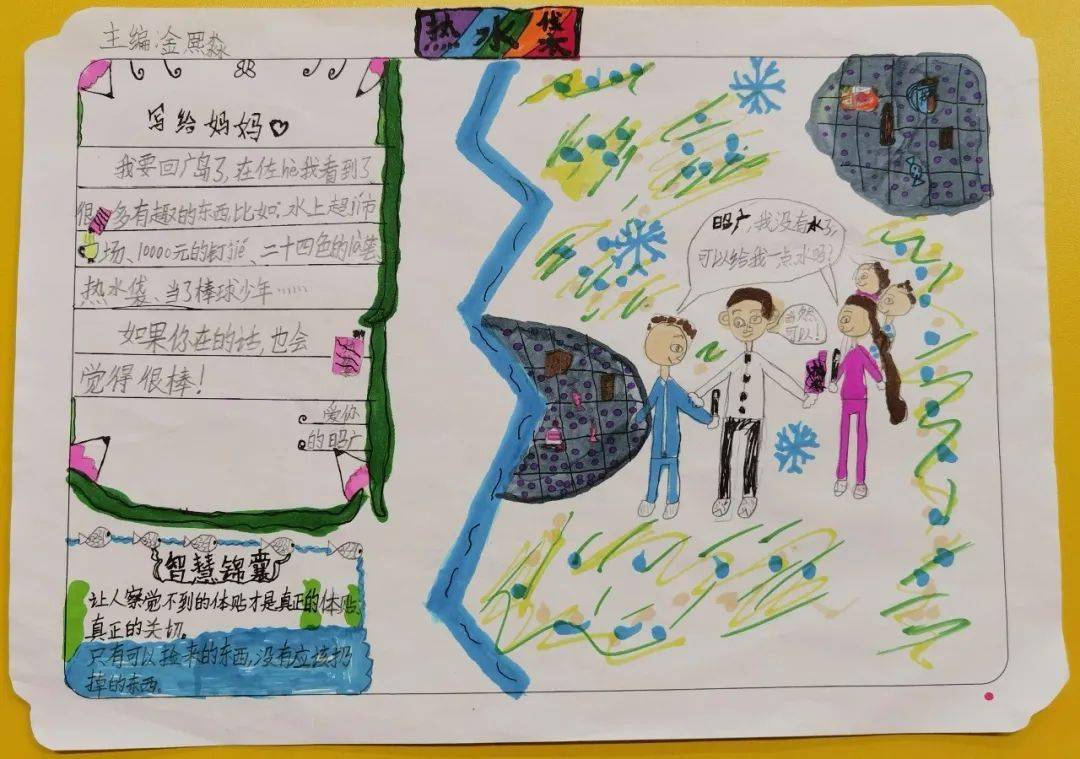 主编:金熙淼
热水袋
写给妈妈
我要回广岛了,在佐he我看到了
很多有趣的东西比如:水上超jí市
场、10000元的钉jiě、二十四色的lǐ装、
热水袋、当了棒球少年……
如果你在的话,也会
觉得很棒!
爱你
的昭广
智慧锦囊
让人察觉不到的体贴才是真正的体贴、
真正的关切。
只有可以捡来的东西,没有应该扔
掉的东西。
昭广,我没有水了,
可以给我一点水吗?
当然
可以!